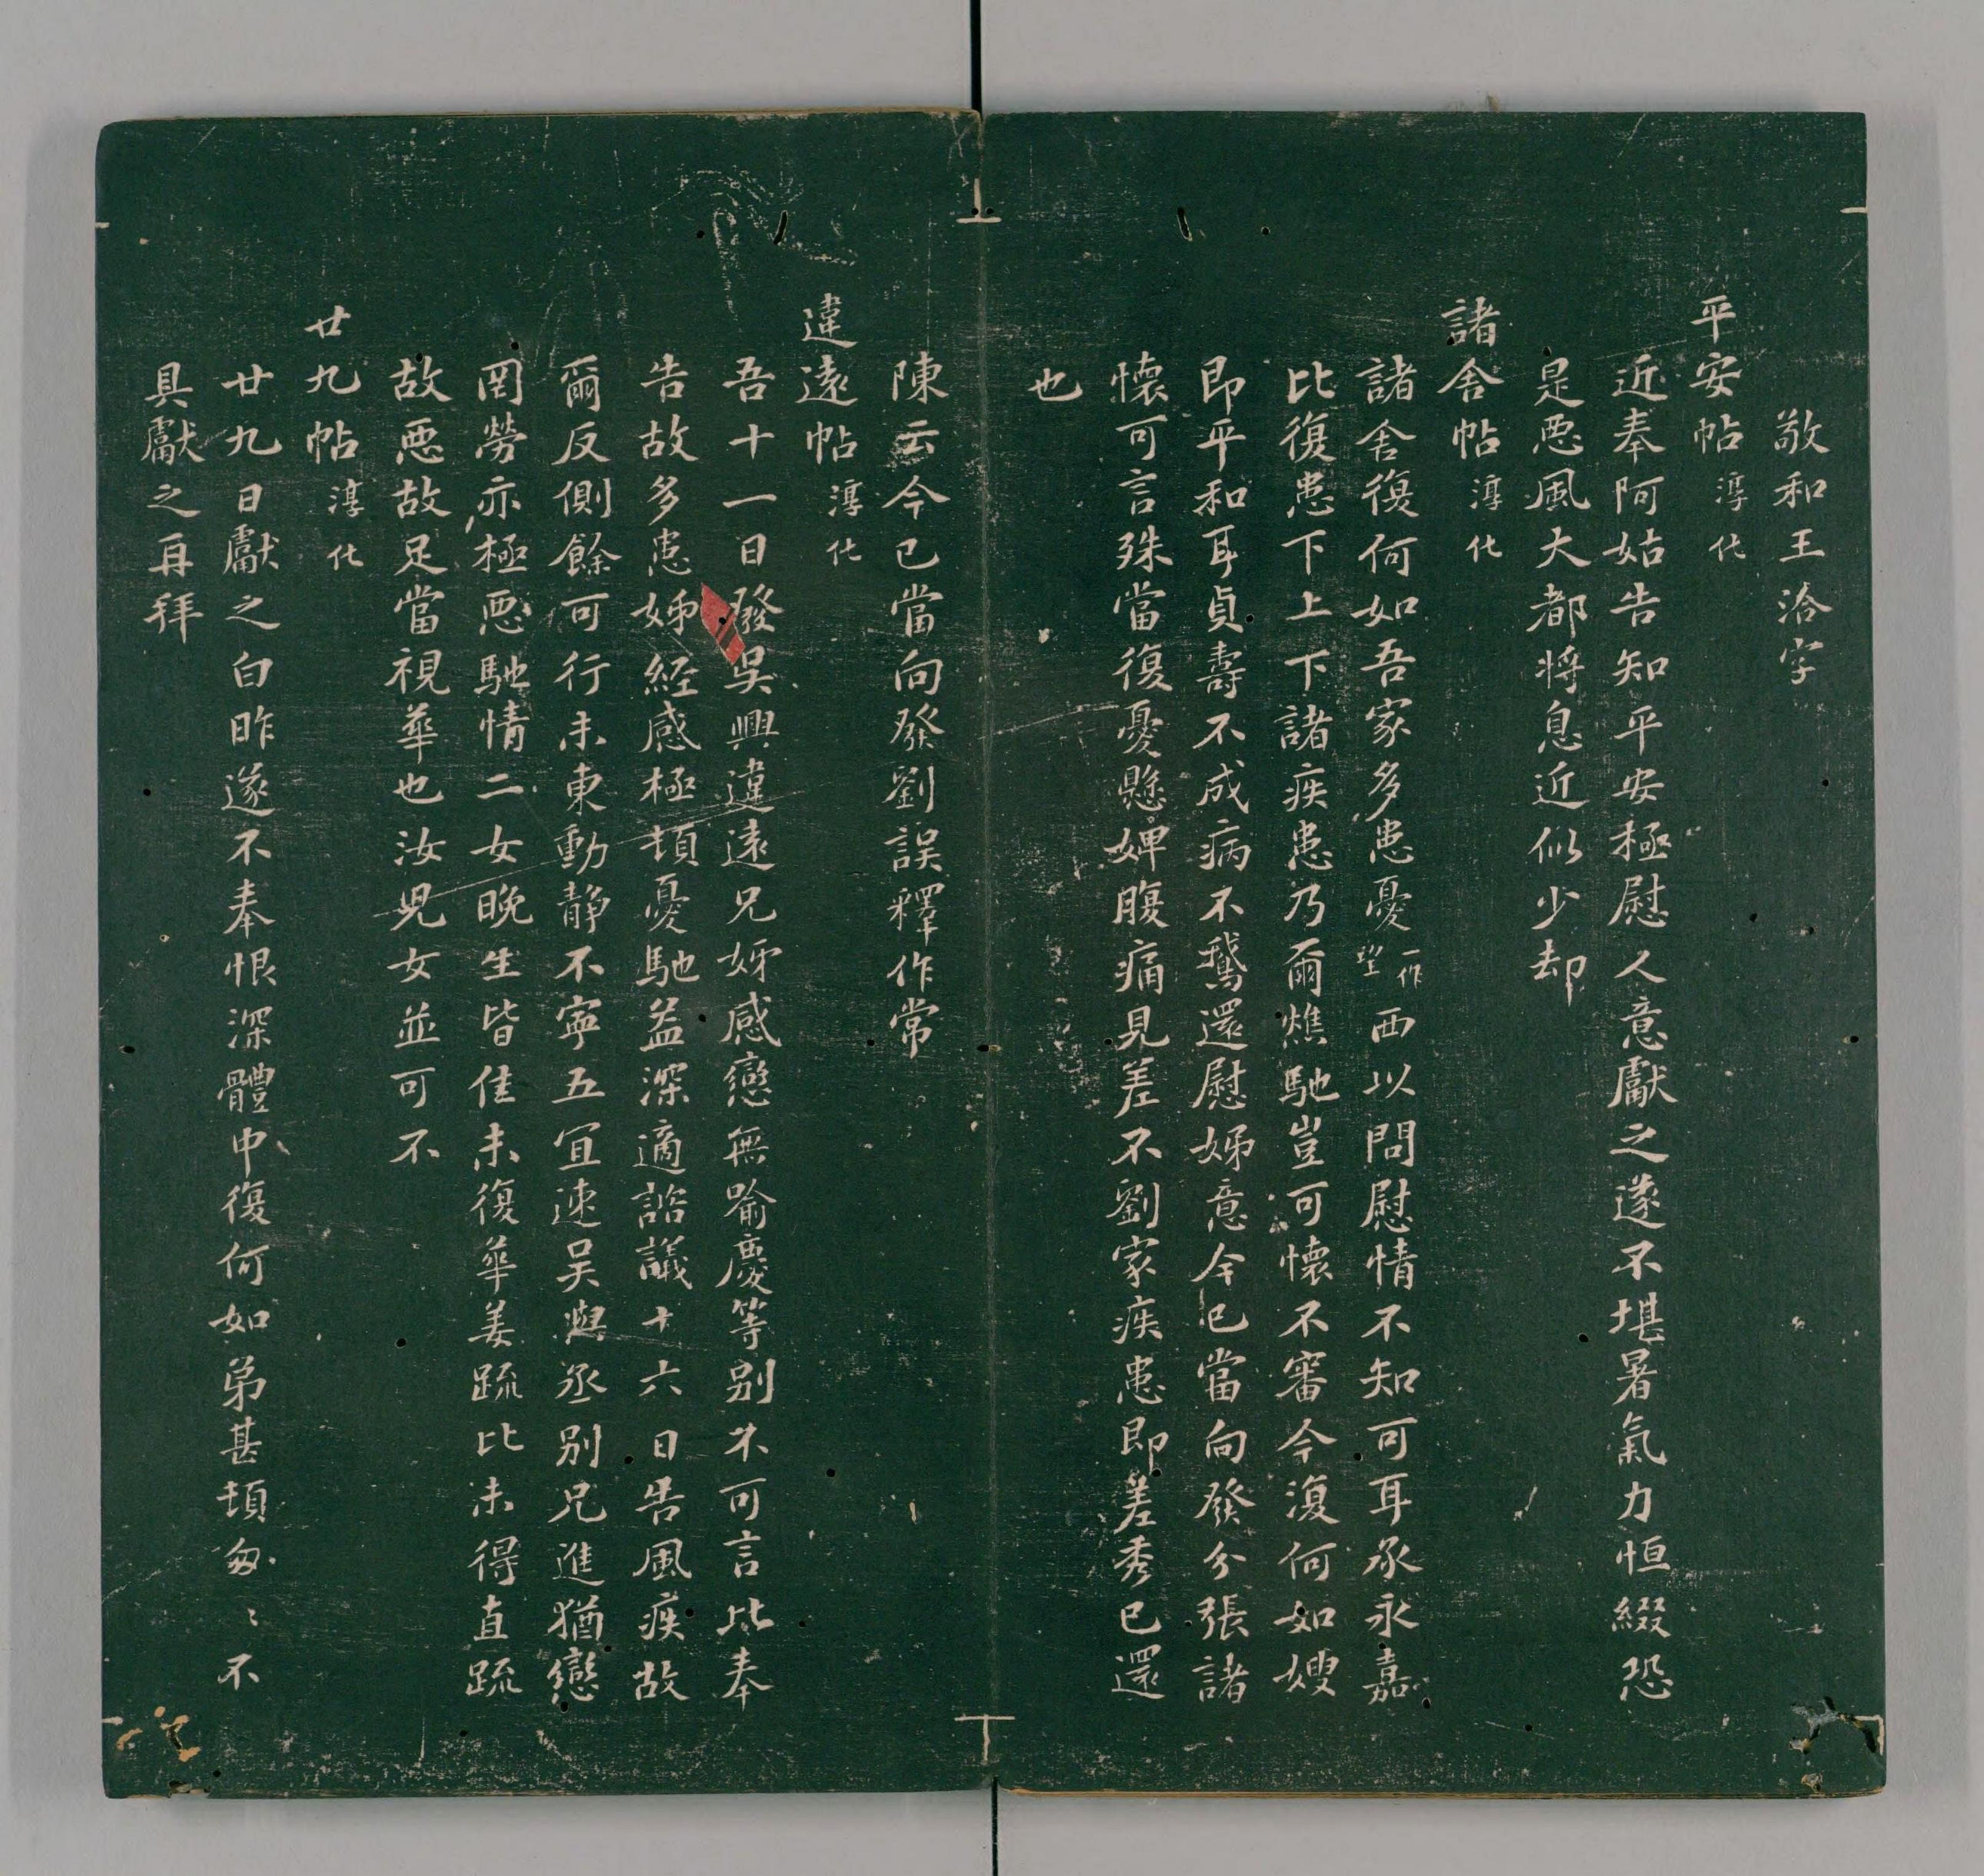 敬和王洽字
平安帖 淳化
近奉阿姑告知平安極慰人意獻之遂不堪暑氣力恒綴恐
是惡風大都將息近似少却
諸舍帖 淳化
諸舍復何如吾家多患憂 一作望 西以問慰情不知可耳承永嘉
比復患下上下諸疾患乃爾燋馳豈可懷不審今復何如嫂
即平和耳貞壽不成病不鵝還慰娣意今已當向發分張諸
懷可言殊當復憂懸婢腹痛見差不劉家疾患即差秀已還
也
陳云今已當向發劉誤釋作常
違遠帖 淳化
吾十一日發吳興違遠兄姊感戀無喻慶等別不可言比奉
告故多患姊經感極頓憂馳益深適諮議十六日告風疾故
爾反側餘可行未東動靜不寧五宜速吳興丞別兄進猶戀
罔勞亦極惡馳情二女晚生皆佳未復華姜疏比未得直疏
故惡故足當視華也汝兒女並可不
廿九帖 淳化
廿九日獻之白昨遂不奉恨深體中復何如弟甚頓匆〻不
具獻之再拜